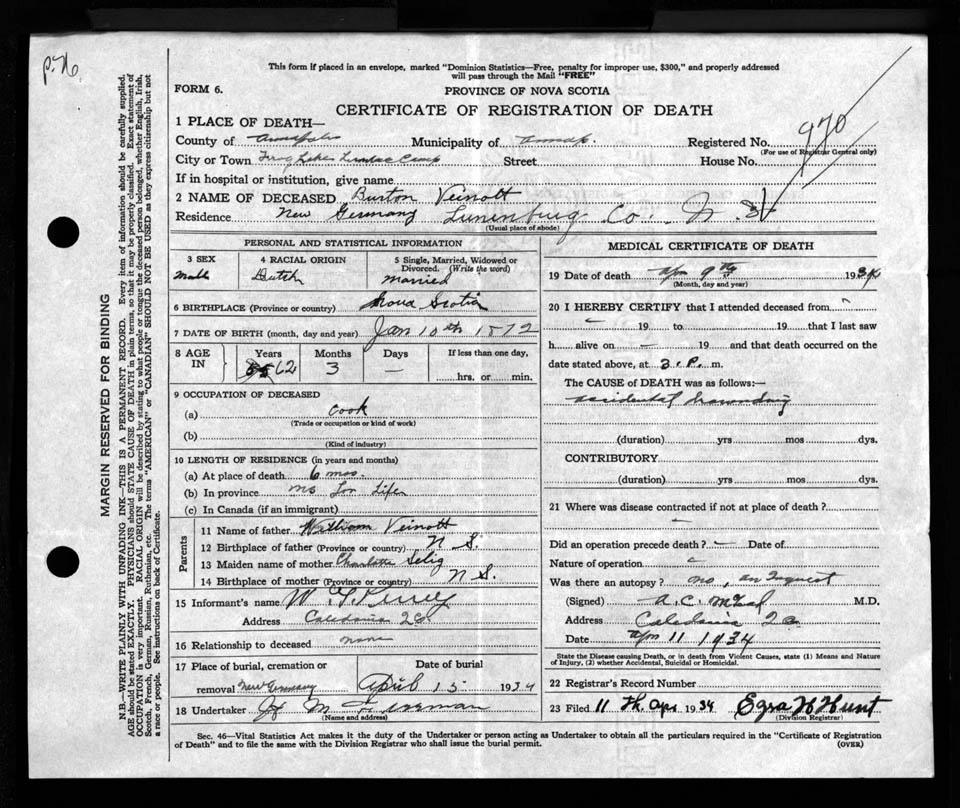 p.76
This form if placed in an envelope, marked "Dominion Statistics—Free, penalty for improper use, $300," and properly addressed
will pass through the Mail "FREE"
FORM 6.
PROVINCE OF NOVA SCOTIA
CERTIFICATE OF REGISTRATION OF DEATH
970
1 PLACE OF DEATH—
County of Annapolis Municipality of Annap. Registered No.
(For use of Registrar General only)
City or Town Lakes Camp Street House No.
If in hospital or institution, give name
2 NAME OF DECEASED Burton Veinott
Residence New Germany Lunenburg Co. N. S.
(Usual place of abode)
PERSONAL AND STATISTICAL INFORMATION
3 SEX 4 RACIAL ORIGIN 5 Single, Married, Widowed or Divorced. (Write the word)
Male Dutch Married
6 BIRTHPLACE (Province or country) Nova Scotia
7 DATE OF BIRTH (month, day and year) Jan 10th 1872
8 AGE IN Years Months Days If less than one day,
62 3 — hrs. or min.
9 OCCUPATION OF DECEASED
(a) Cook
(Trade or occupation or kind of work)
(b)
(Kind of industry)
10 LENGTH OF RESIDENCE (in years and months)
(a) At place of death 6 mos.
(b) In province Life
(c) In Canada (if an immigrant)
Parents
11 Name of father William Veinott
12 Birthplace of father (Province or country) N S.
13 Maiden name of mother Charlotte Selig
14 Birthplace of mother (Province or country) N S.
15 Informant's name W
Address Caledonia
16 Relationship to deceased none
17 Place of burial, cremation or Date of burial
removal New Germany April 15 1934
18 Undertaker M
(Name and address)
MEDICAL CERTIFICATE OF DEATH
19 Date of death Apr 9th 1934
(Month, day and year)
20 I HEREBY CERTIFY that I attended deceased from
— 19 to 19 that I last saw
h alive on — 19 and that death occurred on the
date stated above, at 3. P. m.
The CAUSE of DEATH was as follows:—
accidental drowning
(duration) yrs mos dys.
CONTRIBUTORY
(duration) yrs mos dys.
21 Where was disease contracted if not at place of death?
—
Did an operation precede death? — Date of
Nature of operation
Was there an autopsy? no, an Inquest
(Signed) A. C. M.D.
Address Caledonia
Date Apr 11 1934
State the Disease causing Death, or in death from Violent Causes, state (1) Means and Nature
of Injury, (2) whether Accidental, Suicidal or Homicidal.
22 Registrar's Record Number
23 Filed 11 th Apr 1934 Ezra W Hunt
(Division Registrar)
Sec. 46—Vital Statistics Act makes it the duty of the Undertaker or person acting as Undertaker to obtain all the particulars required in the "Certificate of Registration
of Death" and to file the same with the Division Registrar who shall issue the burial permit. (OVER)
MARGIN RESERVED FOR BINDING
N.B.—WRITE PLAINLY WITH UNFADING INK—THIS IS A PERMANENT RECORD. Every item of information should be carefully supplied.
AGE should be stated EXACTLY. PHYSICIANS should STATE CAUSE OF DEATH in plain terms, so that it may be properly classified. Exact statement of
OCCUPATION is very important. RACIAL ORIGIN will be described by stating to what people or tongue the deceased person belonged, whether English, Irish,
Scotch, French, German, Russian, Ruthenian, etc. The terms "AMERICAN" or "CANADIAN" SHOULD NOT BE USED as they express citizenship but not
a race or people. See instructions on back of Certificate.